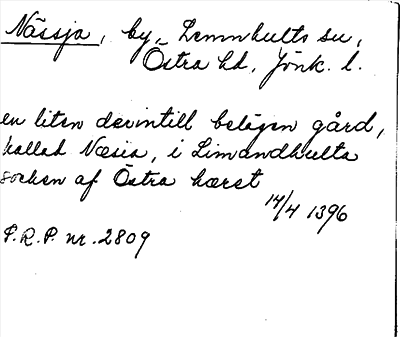 Nässja, by, Lemnhults sn,
Östra hd, Jönk. l.
en liten derintill belägen gård,
kallad Næsia, i Limandhulta
socken af Östra hæret
14/4 1396
P.R.P. nr. 2809